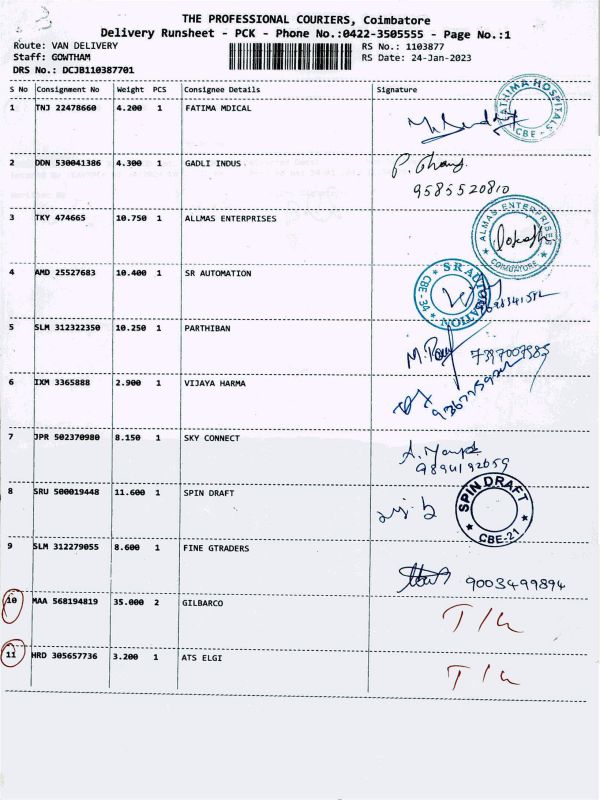 3
THE PROFESSIONAL COURIERS, Coimbatore
Delivery Runsheet - PCK - Phone No.:0422-3505555 - Page No.:1
Route: VAN DELIVERY RS No.: 1103877
Staff: GOWTHAM RS Date: 24-Jan-2023
DRS No.: DCJB110387701
S No Consignment No Weight PCS Consignee Details Signature
1 TNJ 22478660 4.200 1 FATIMA MDICAL
FATHIMA HOSPITALS CBE -
2 DDN 530041386 4.300 1 GADLI INDUS
9585520810
3 TKY 474665 10.750 1 ALLMAS ENTERPRISES
ALMAS ENTERPRISES COIMBATORE
4 AMD 25527683 10.400 1 SR AUTOMATION
SR AUTOMATION CBE-34
5 SLM 312322350 10.250 1 PARTHIBAN
7397007985
6 IXM 3365888 2.900 1 VIJAYA HARMA
7 JPR 502370980 8.150 1 SKY CONNECT
9894192659
8 SRU 500019448 11.600 1 SPIN DRAFT
SPIN DRAFT CBE-21
9 SLM 312279055 8.600 1 FINE GTRADERS
9003499894
10 MAA 568194819 35.000 2 GILBARCO
11 HRD 305657736 3.200 1 ATS ELGI